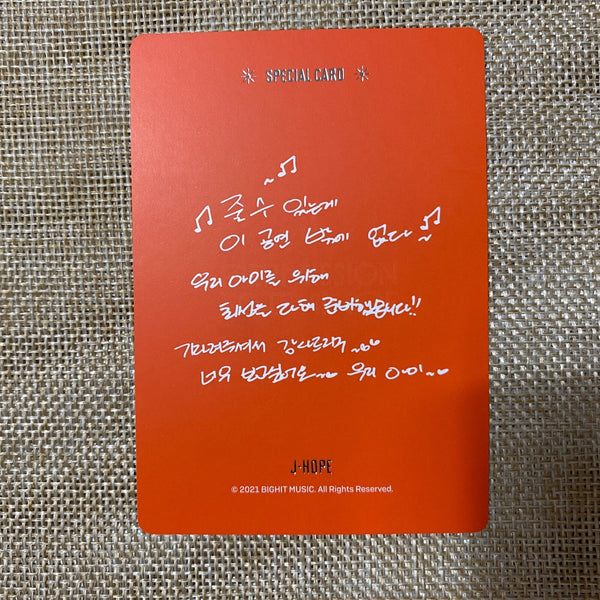 SPECIAL CARD
줄 수 있는게
이 공연 밖에 없다
우리 아미를 위해
최선을 다해 준비했습니다!!
기다려주셔서 감사드리며
너무 보고싶어요 우리 아미
J-HOPE
© 2021 BIGHIT MUSIC. All Rights Reserved.